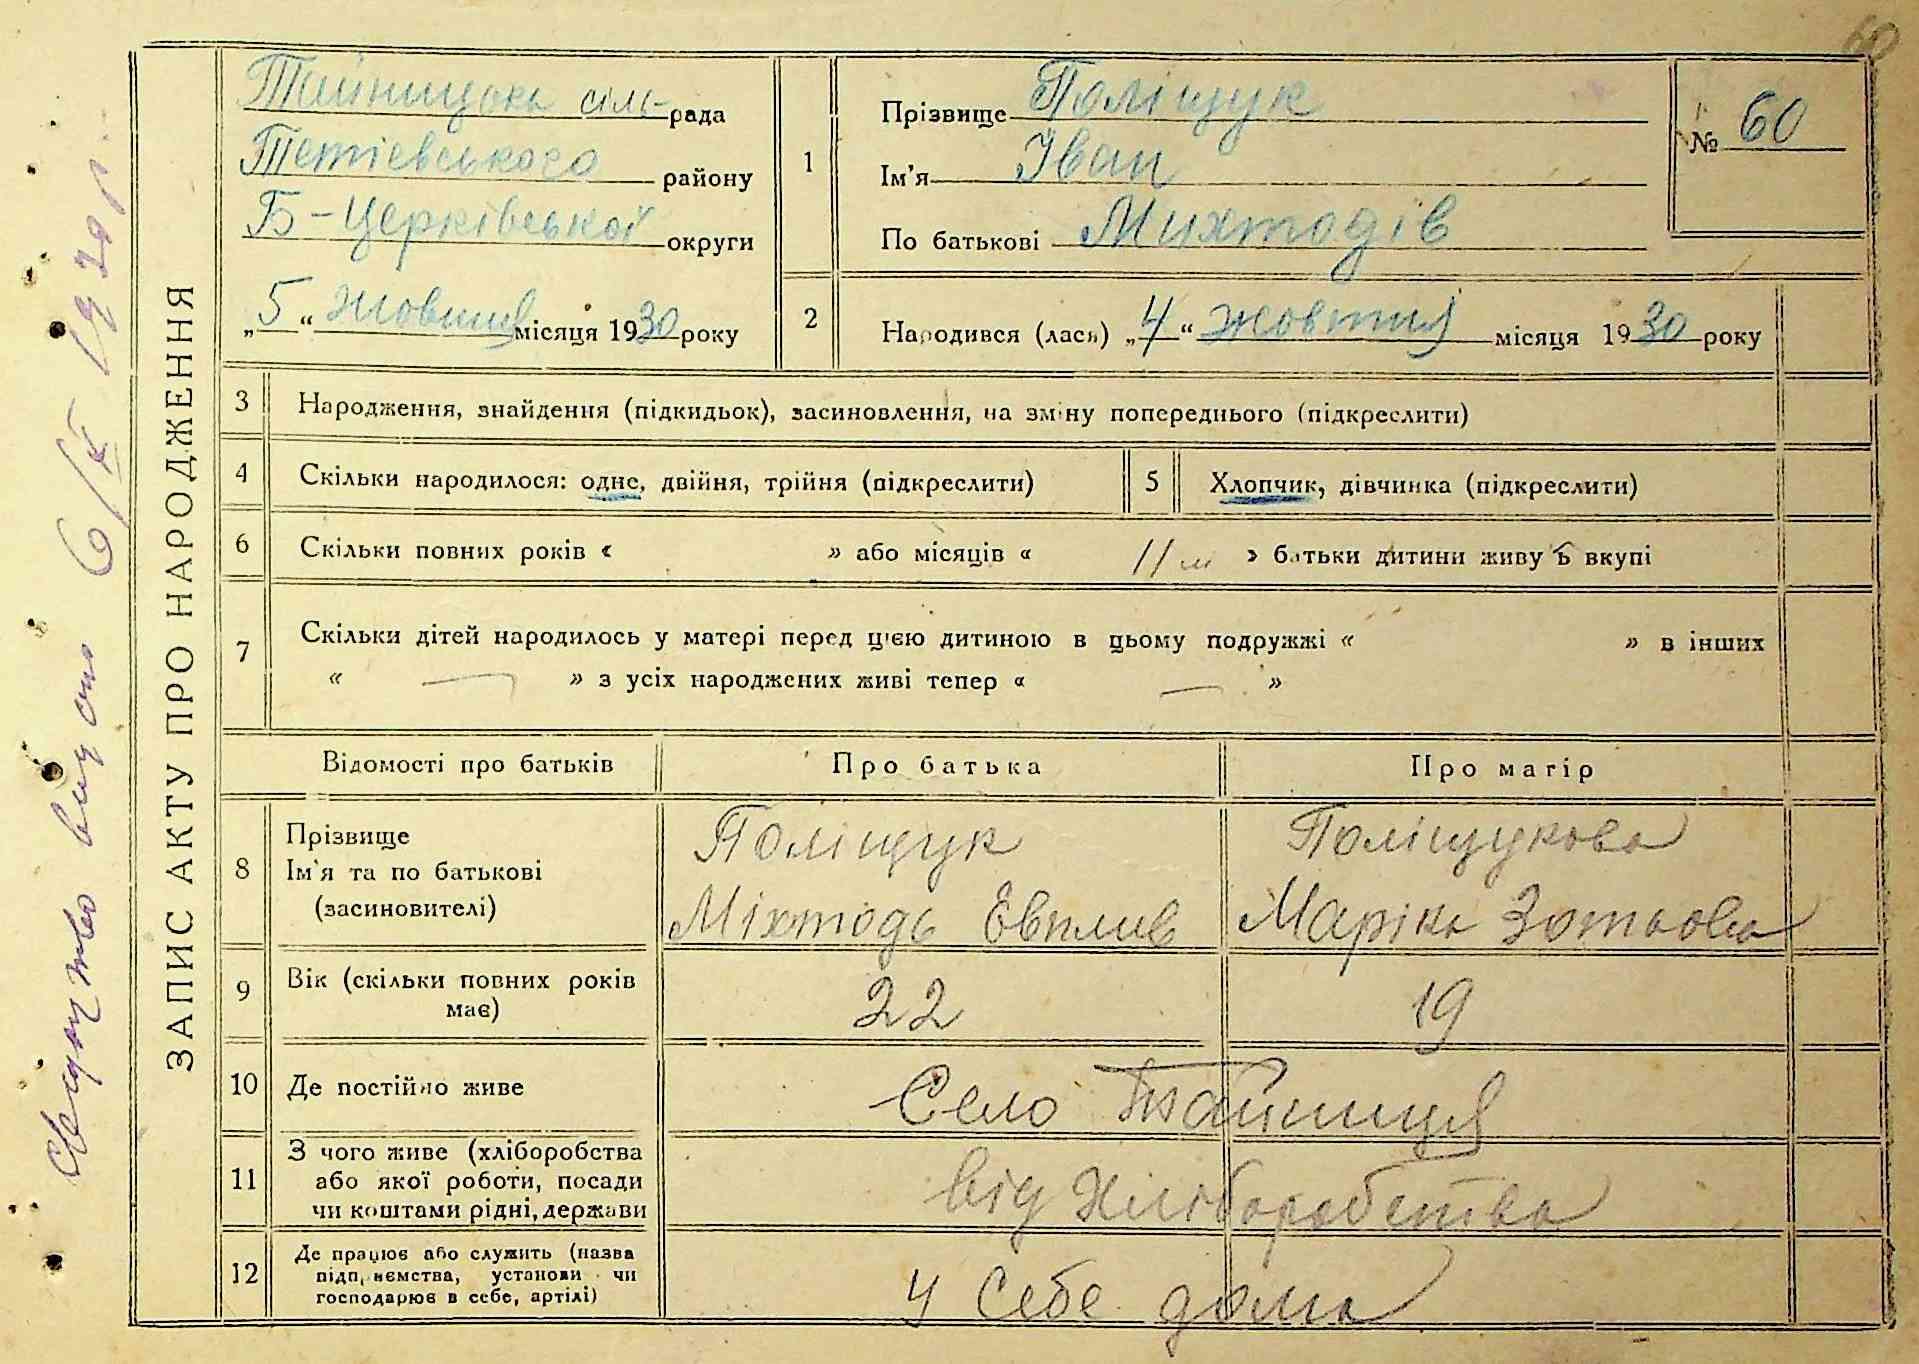 60
ЗАПИС АКТУ ПРО НАРОДЖЕННЯ
Свидутво видано 6/X 1930 р.
Тайницька сіль-рада
Тетіевського району
Б-Церківської округи
„5“ Жовтня місяця 1930 року
1
Прізвище Поліщук
Ім'я Іван
По батькові Михтодів
№ 60
2
Народився (лась) „4“ жовтня місяця 1930 року
3 Народження, знайдення (підкидьок), засиновлення, на зміну попереднього (підкреслити)
4 Скільки народилося: одне, двійня, трійня (підкреслити)
5 Хлопчик, дівчинка (підкреслити)
6 Скільки повних років « » або місяців « 11 м » батьки дитини живуть вкупі
7 Скільки дітей народилось у матері перед цією дитиною в цьому подружжі « » в інших
« — » з усіх народжених живі тепер « — »
Відомості про батьків Про батька Про матір
8 Прізвище
Ім'я та по батькові
(засиновителі)
Поліщук
Міхтодь Евплив
Поліщукова
Маріка Зотьова
9 Вік (скільки повних років
має)
22
19
10 Де постійно живе
Село Тайниця
11 З чого живе (хліборобства
або якої роботи, посади
чи коштами рідні, держави
від Хліборобства
12 Де працює або служить (назва
підприємства, установи чи
господарює в себе, артілі)
У Себе дома